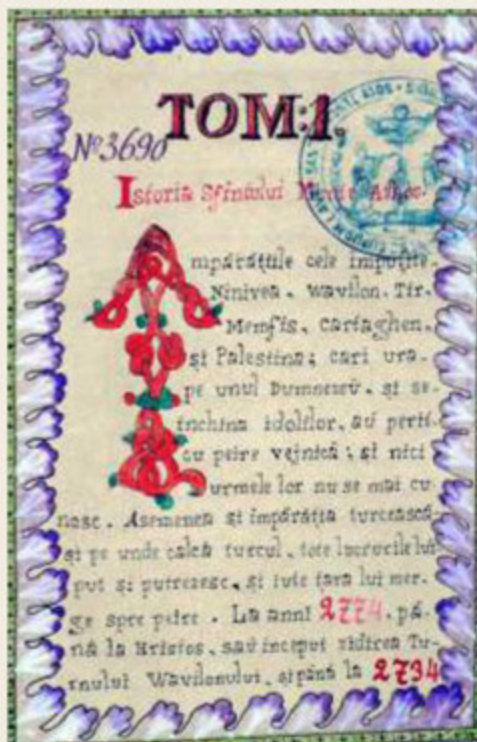 TOM:1.
Nº3690
Istoria Sfîntului Munte Athos.
Împărățiile cele împuțite.
Ninivea. Wavilon. Tir.
Memfis. Cartaghen.
și Palestina; cari ura.
pe unul Dumnezeu. și se
închina idolilor. aŭ perit
cu peire vejnică; și nici
urmele lor nu se mai cu
nosc. Asemenea și împărăția turcească
și pe unde calcă turcul. tote lucrurile lui
put și putrezesc. și tote țara lui mer-
ge spre peire. La anni 2774. pă-
nă la Hristos. saŭ început zidirea Tu-
rnului Wavilonului. și pănă la 2794